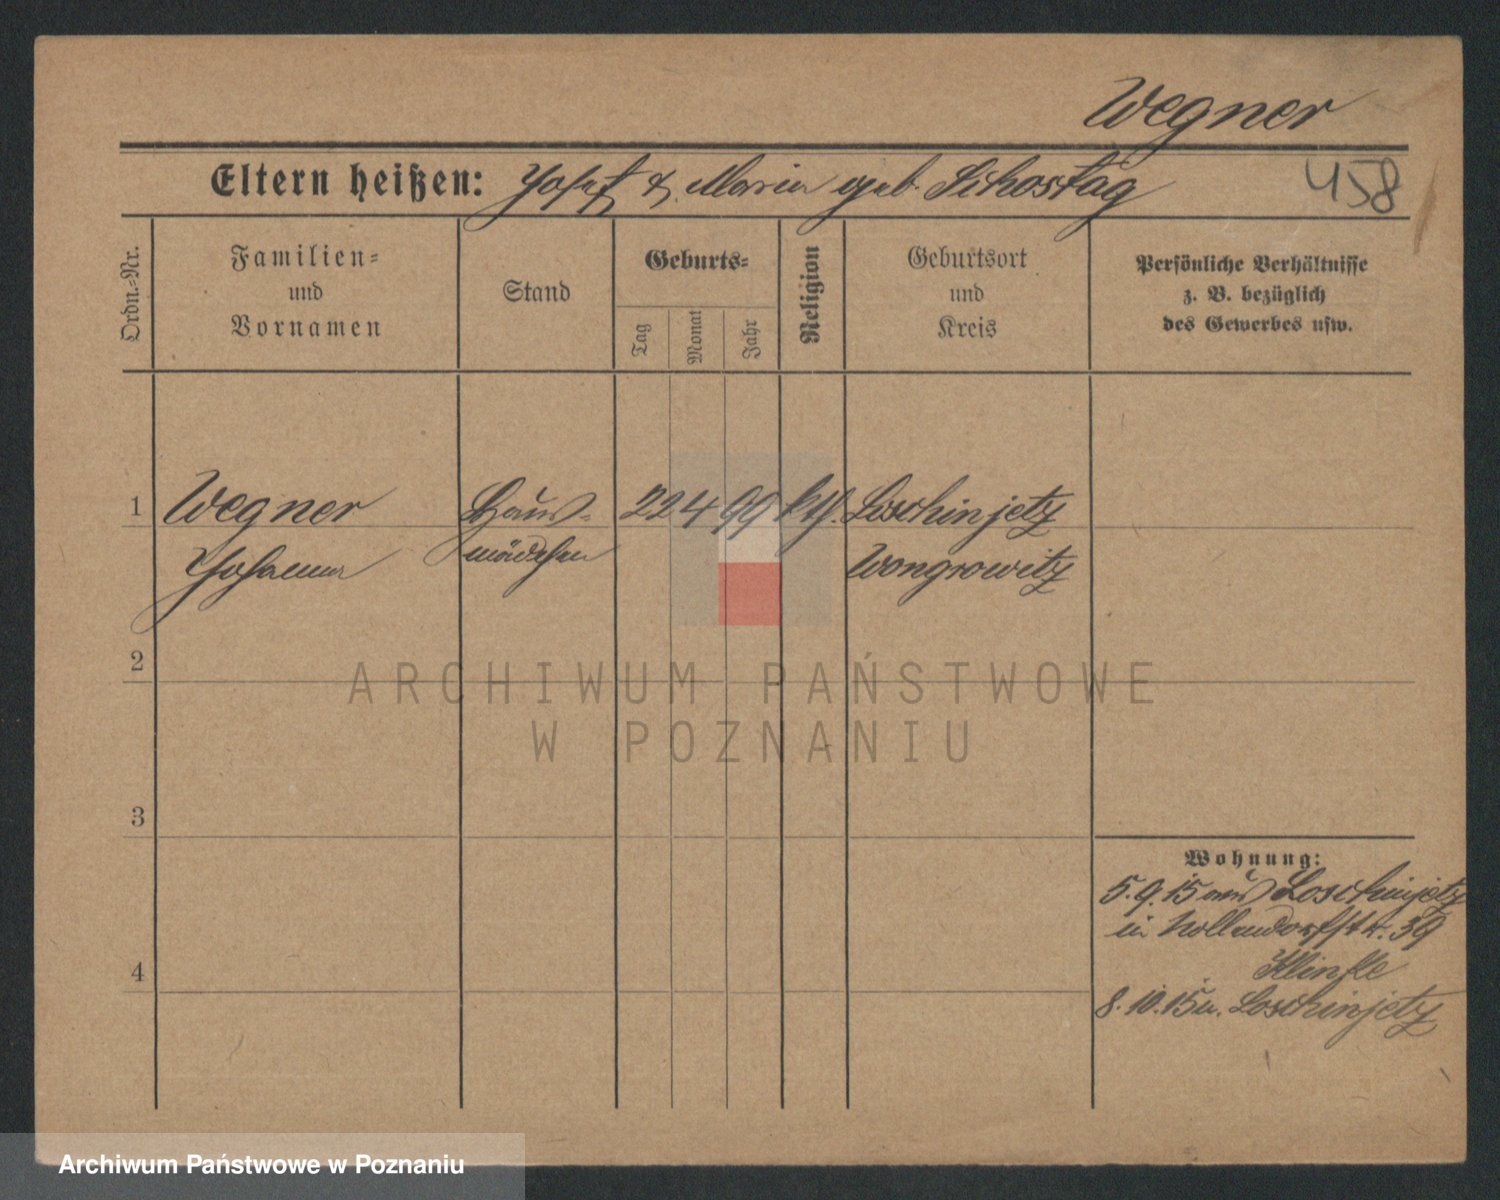 Wegner
458
Eltern heißen: Josef & Maria geb. Sikostag
Ordn.-Nr.
Familien-
und
Vornamen
Stand
Geburts-
Tag
Monat
Jahr
Religion
Geburtsort
und
Kreis
Persönliche Verhältnisse
z. B. bezüglich
des Gewerbes usw.
1 Wegner Haus- 22 4 99 kth. Loschinjetz
Johanna mädchen Wongrowitz
2
ARCHIWUM PAŃSTWOWE
W POZNANIU
3
Wohnung:
5.9.15 aus Loschinjetz
in Hollendorfstr. 39
4
8.10.15 n. Loschinjetz
Archiwum Państwowe w Poznaniu